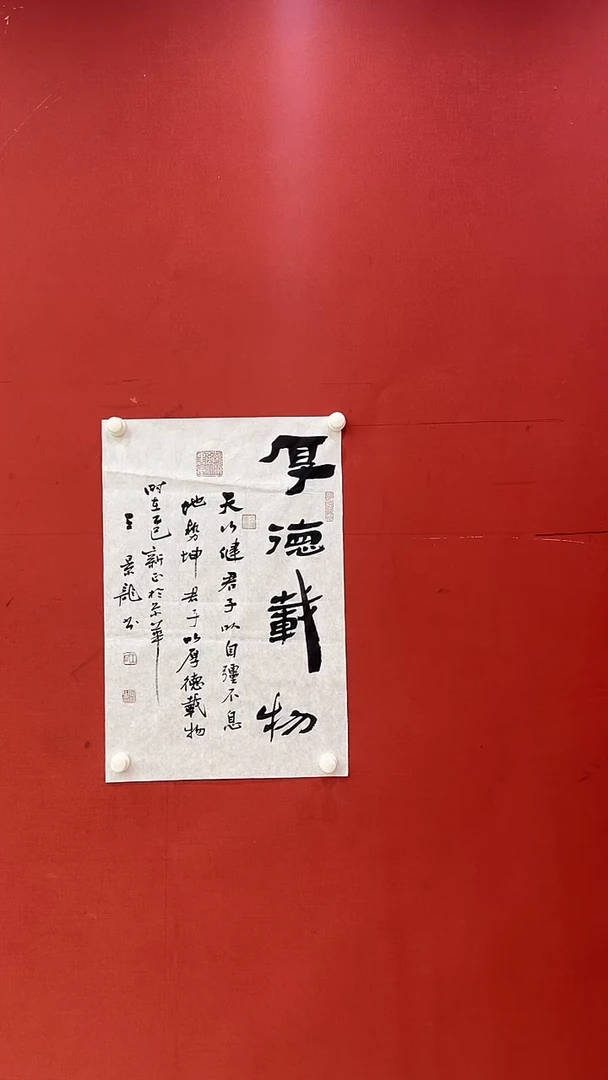 厚德載物
天行健君子以自彊不息
地势坤君子以厚德載物
时在乙巳新正於京華
王景龍书